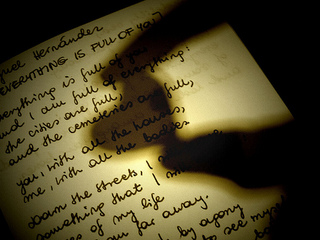 guel Hernández
EVERYTHING IS FULL OF YOU)
erything is full of you
and I am full of everything:
the cities are full,
and the cemeteries are full,
you, with all the houses,
me, with all the bodies
down the streets, I
something that I
es of my life
far away.
by agony
to see myse